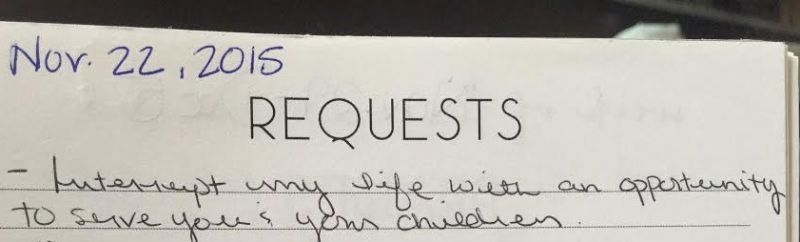 Nov. 22, 2015
REQUESTS
- Interrupt my life with an opportunity
to serve you & your children.